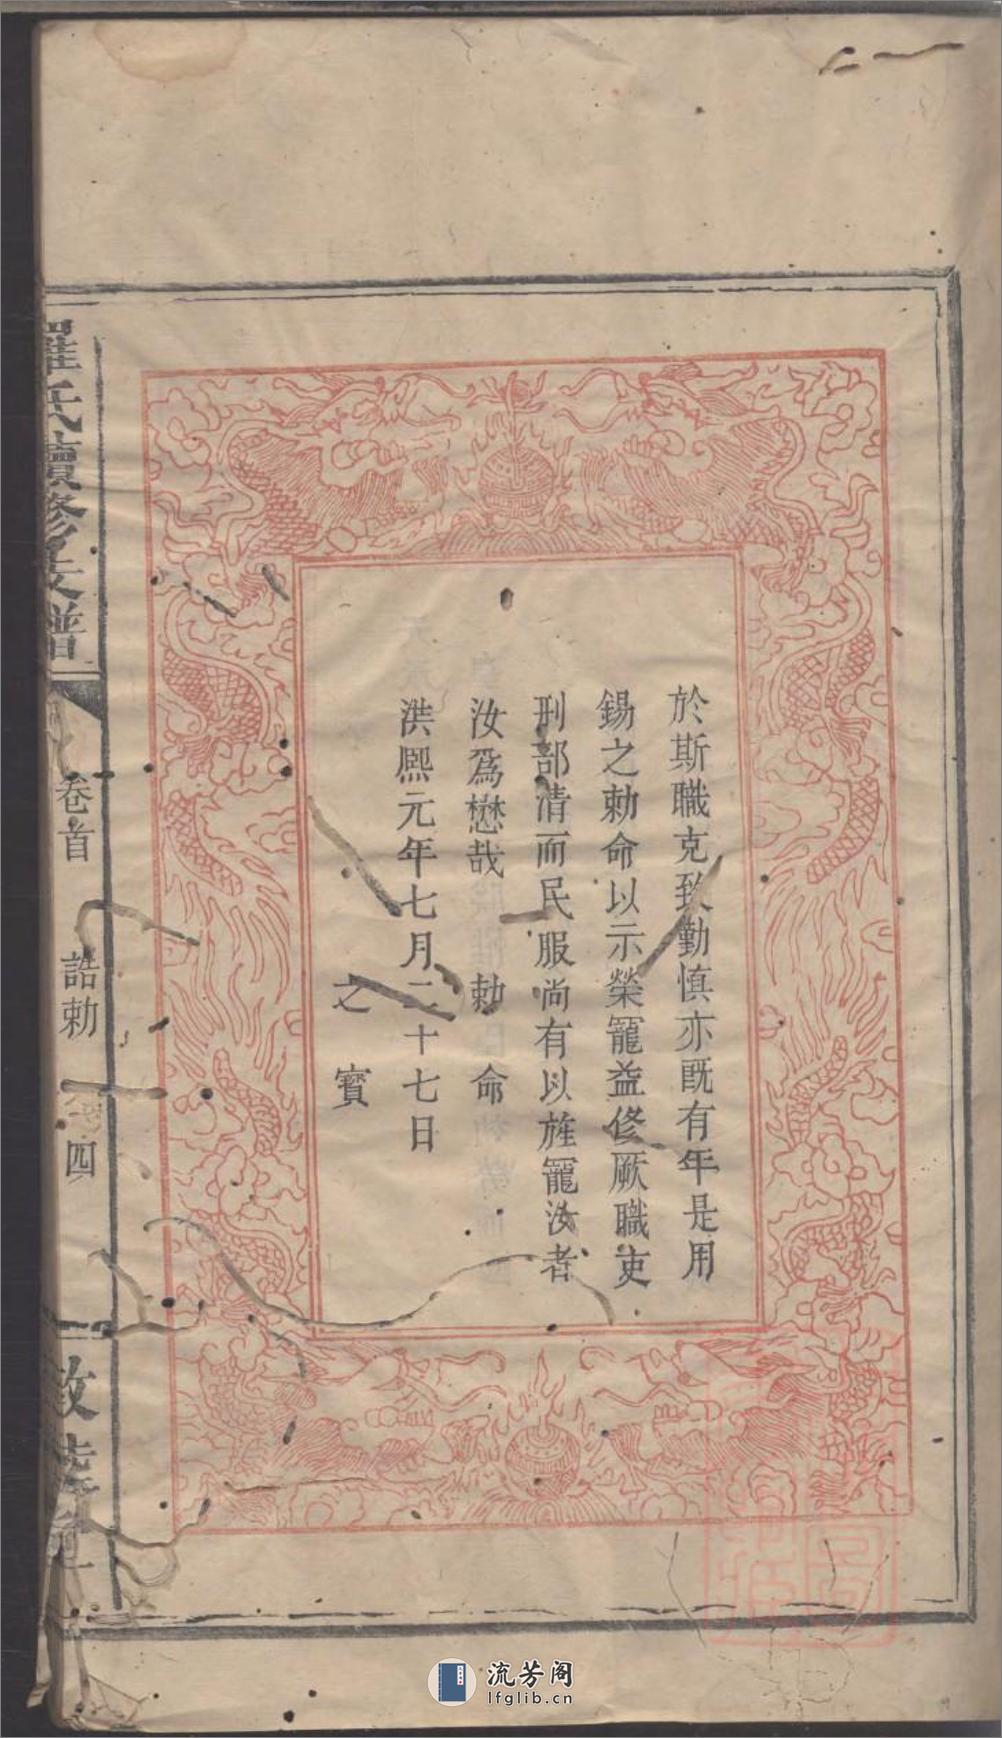 於斯職克致勤慎亦既有年是用
錫之勅命以示榮寵益修厥職吏
刑部清而民服尚有以旌寵汝者
汝爲懋哉 勅命
洪熙元年七月二十七日
之寶
羅氏續修支譜
卷首 誥勅 四
敦
流芳阁
lfglib.cn